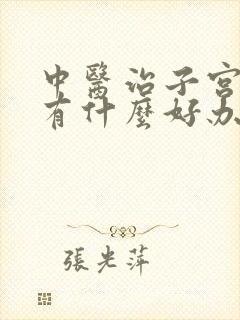 中醫治子宮
有什麼好办
張光萍